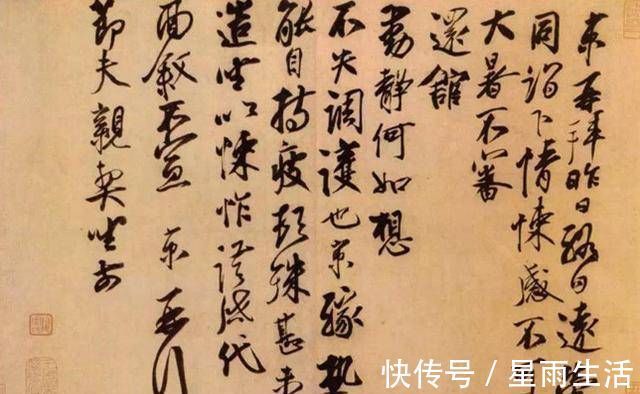 京再拜昨日終日遠
同詣下情悚感不
大暑不審
還館
動靜何如想
不失調護也京緣熱
能自持疲頓殊甚未
造坐以悚怍謹啟代
面敘不宣 京 再拜
節夫親契坐前
快传号/星雨生活